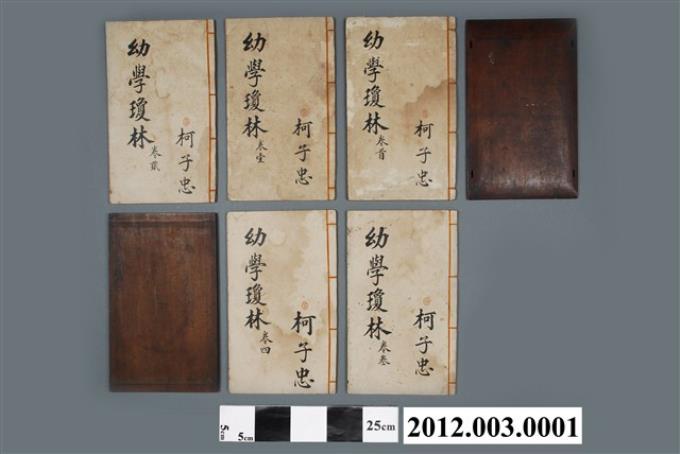 幼學瓊林
卷貳
柯子忠
幼學瓊林
卷壹
柯子忠
幼學瓊林
卷首
柯子忠
幼學瓊林
卷四
柯子忠
幼學瓊林
卷叁
柯子忠
5cm
5cm
25cm
2012.003.0001